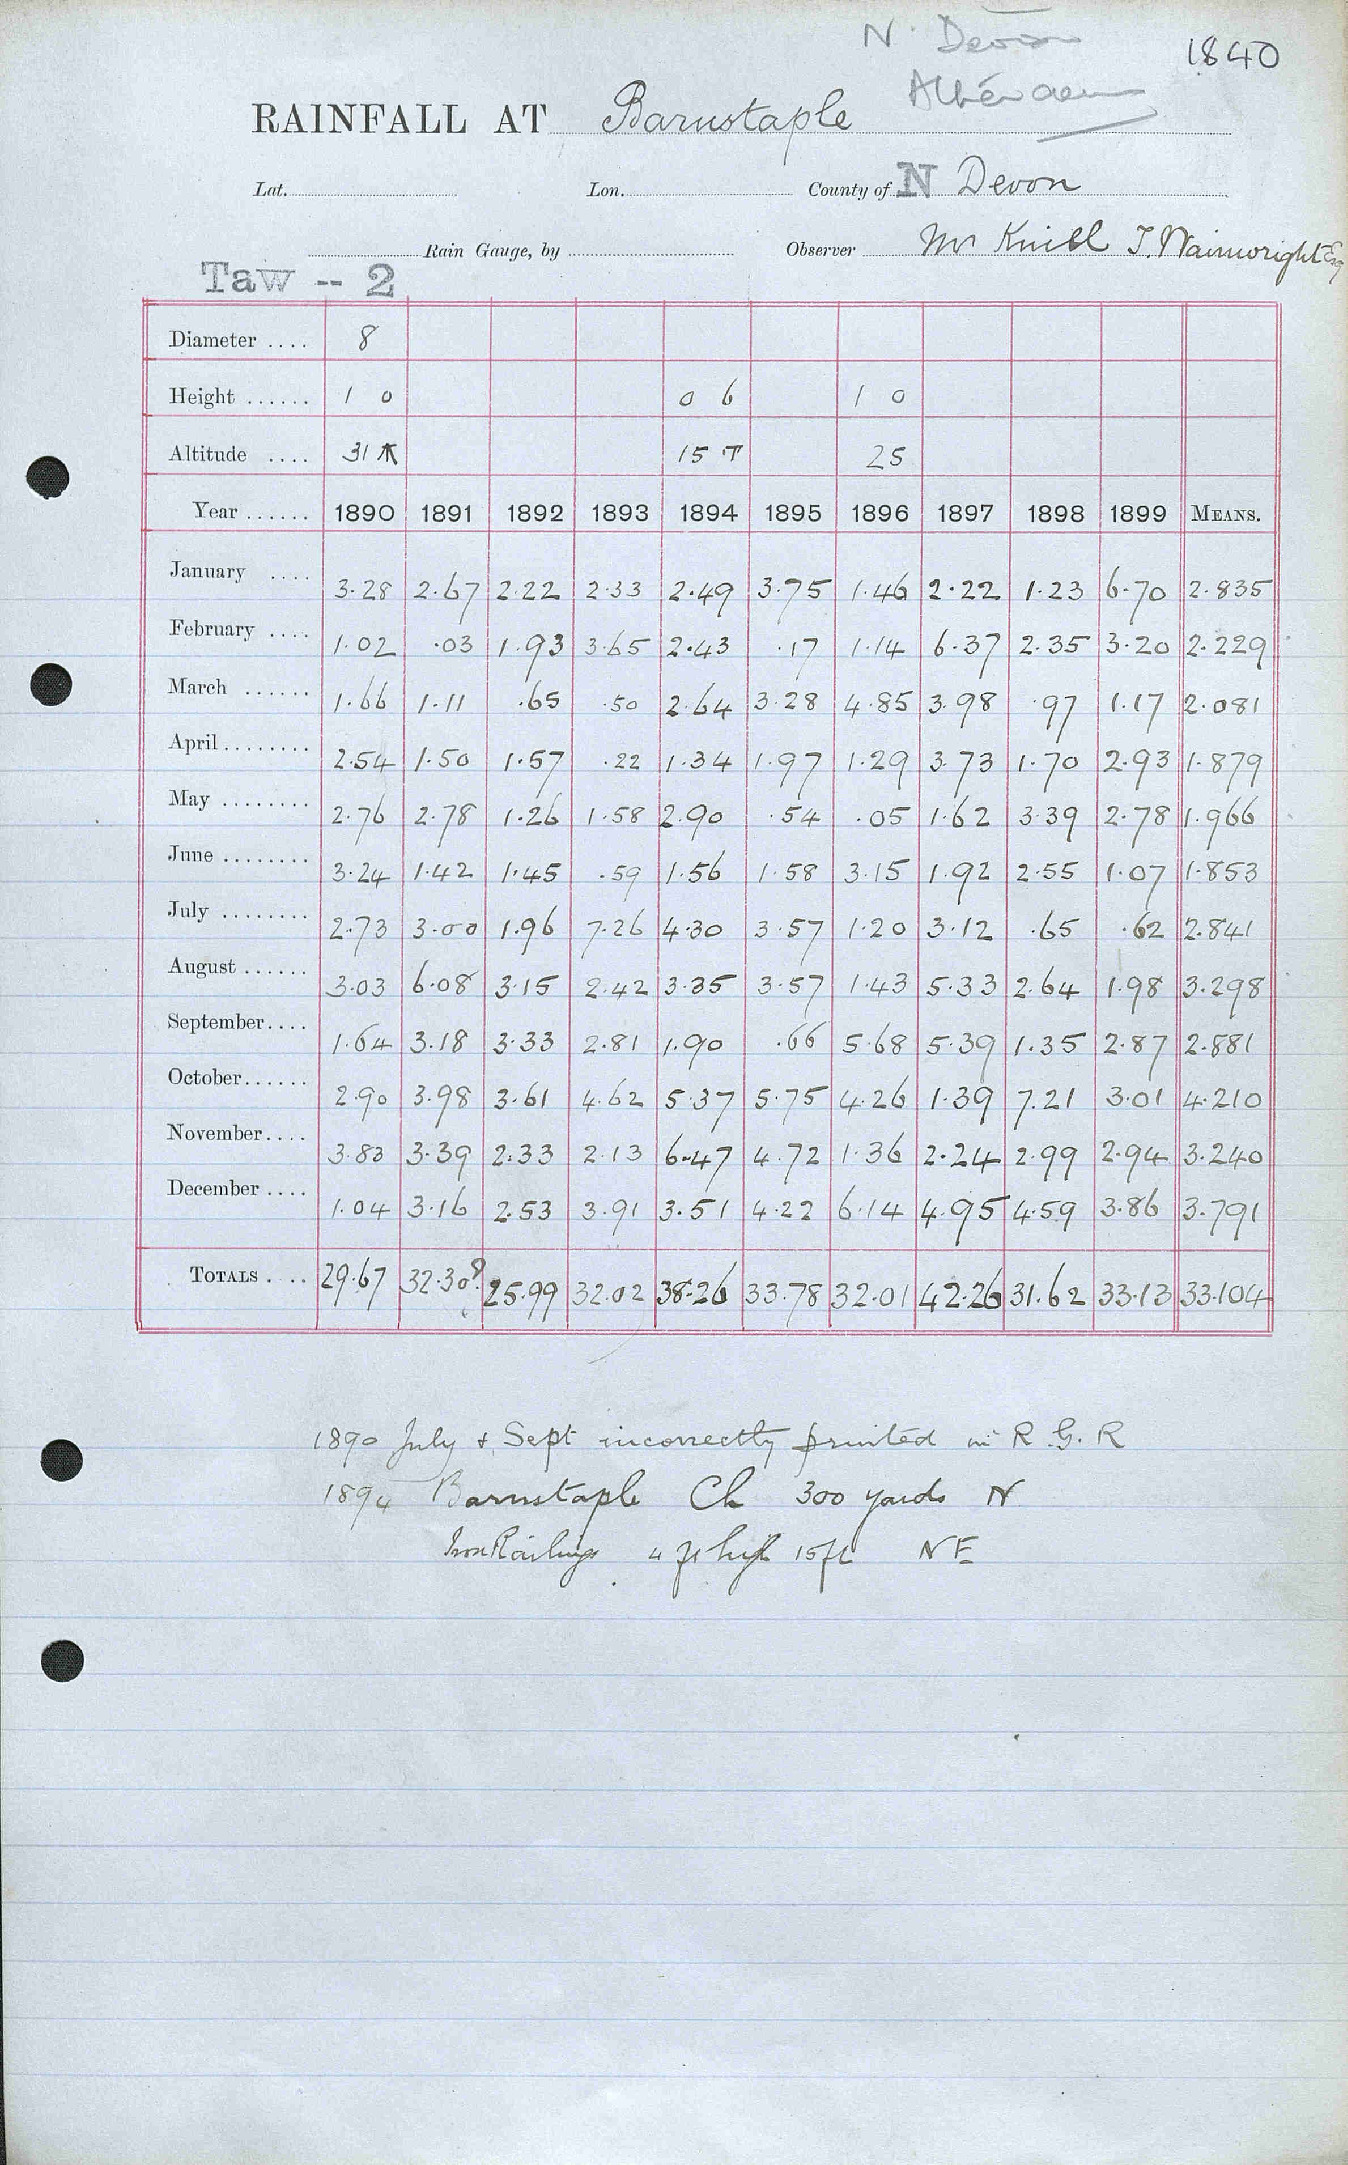 N. Devon
1840
Athenaeum
RAINFALL AT Barnstaple
Lat. Lon. County of N Devon
Rain Gauge, by Observer Mr Knill J. Wainwright Esq
Taw -- 2
Diameter .... 8
Height ...... 1 0 0 6 1 0
Altitude .... 31 15 T 25
Year ...... 1890 1891 1892 1893 1894 1895 1896 1897 1898 1899 MEANS.
January .... 3.28 2.67 2.22 2.33 2.49 3.75 1.46 2.22 1.23 6.70 2.835
February .... 1.02 .03 1.93 3.65 2.43 .17 1.14 6.37 2.35 3.20 2.229
March ...... 1.66 1.11 .65 .50 2.64 3.28 4.85 3.98 .97 1.17 2.081
April ........ 2.54 1.50 1.57 .22 1.34 1.97 1.29 3.73 1.70 2.93 1.879
May ........ 2.76 2.78 1.26 1.58 2.90 .54 .05 1.62 3.39 2.78 1.966
June ........ 3.24 1.42 1.45 .59 1.56 1.58 3.15 1.92 2.55 1.07 1.853
July ........ 2.73 3.00 1.96 7.26 4.30 3.57 1.20 3.12 .65 .62 2.841
August ...... 3.03 6.08 3.15 2.42 3.35 3.57 1.43 5.33 2.64 1.98 3.298
September.... 1.64 3.18 3.33 2.81 1.90 .66 5.68 5.39 1.35 2.87 2.881
October...... 2.90 3.98 3.61 4.62 5.37 5.75 4.26 1.39 7.21 3.01 4.210
November.... 3.83 3.39 2.33 2.13 6.47 4.72 1.36 2.24 2.99 2.94 3.240
December .... 1.04 3.16 2.53 3.91 3.51 4.22 6.14 4.95 4.59 3.86 3.791
TOTALS .... 29.67 32.30? 25.99 32.02 38.26 33.78 32.01 42.26 31.62 33.13 33.104
1890 July & Sept incorrectly printed in R. G. R
1894 Barnstaple Ch 300 yards N
Iron Railings 4 ft high 15 ft NE